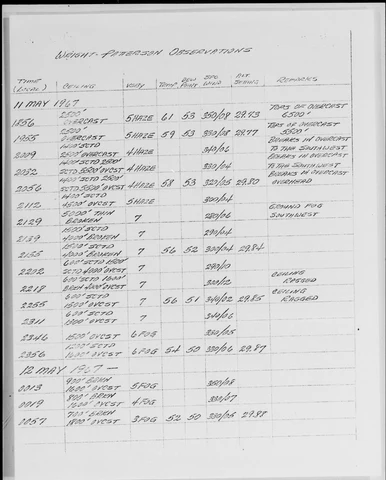 WRIGHT-PATERSON OBSERVATIONS
TIME (LOCAL) CEILING VSBY TEMP DEW POINT SPD WIND ALT SETTING REMARKS
11 MAY 1967
1856 2500' OVERCAST 5HAZE 61 53 350/08 29.73 TOPS OF OVERCAST 6500'
1955 2500' OVERCAST 5HAZE 59 53 350/08 29.77 TOP OF OVERCAST 5500'
2009 1400' SCTD 2500' OVERCAST 4HAZE 340/06 BREAKS IN OVERCAST TO THE SOUTHWEST
2032 1400' SCTD 2500' 4HAZE 320/04 BREAKS IN OVERCAST TO THE SOUTHWEST
2056 5500' OVCST 4HAZE 58 53 320/05 29.80 BREAKS IN OVERCAST OVERHEAD
2112 1400' SCTD 4500' OVCST 5HAZE 300/04
2129 5000' THIN BROKEN 7 280/06 GROUND FOG SOUTHWEST
2139 1500' SCTD 4000' BROKEN 7 290/04
2155 1500' SCTD 4000' BROKEN 7 56 52 300/04 29.84
2202 600' SCTD 1500' SCTD 4000' OVCST 7 290/10
2218 600' SCTD 1500' BRKN 4000' OVCST 7 300/02 CEILING RAGGED
2255 600' SCTD 1500' OVCST 7 56 51 340/02 29.85 CEILING RAGGED
2311 600' SCTD 1400' OVCST 7 340/06
2346 1500' OVCST 6FOG 330/05
2356 1200' SCTD 1600' OVCST 6FOG 54 50 330/06 29.87
12 MAY 1967 —
0013 900' BRKN 1600' OVCST 5FOG 350/08
0019 800' BRKN 1600' OVCST 4FOG 330/07
0057 700' BRKN 1800' OVCST 3FOG 52 50 330/05 29.88